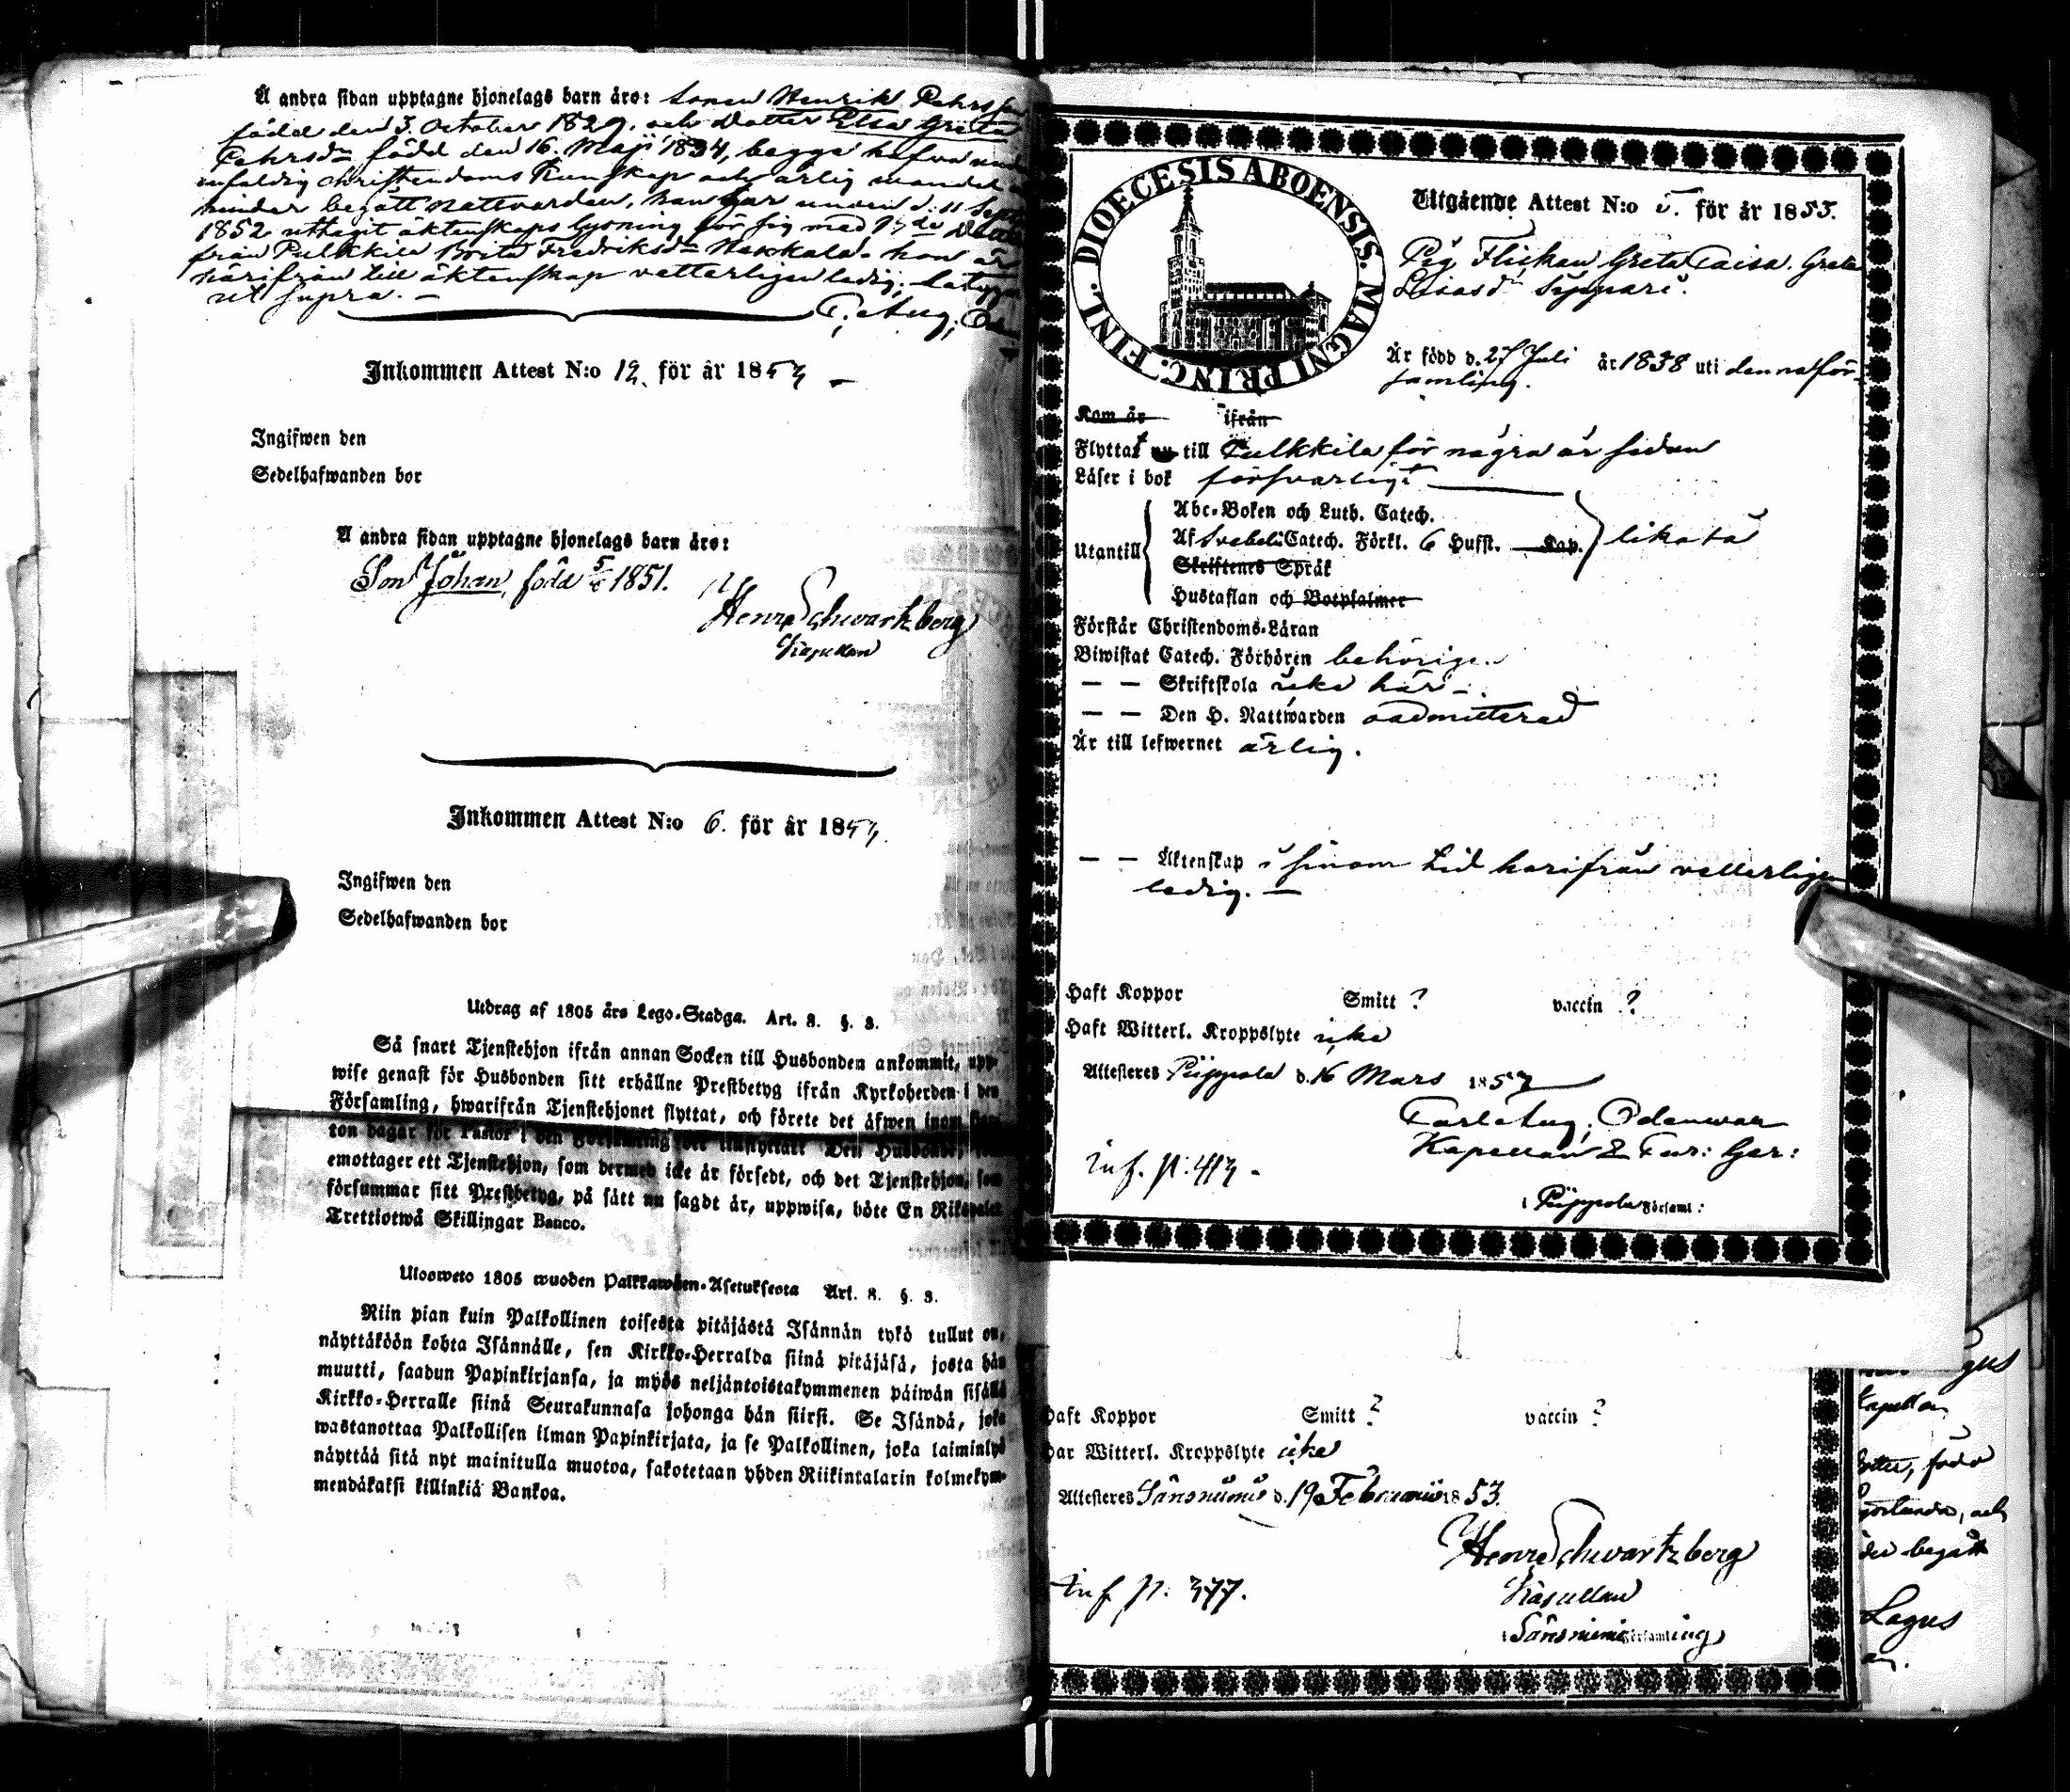 Å andra sidan upptagne hjonelags barn äro: Sonen Henrik Pehrsson
född den 3. October 1829. och Dotter Elsa Greta
Pehrsdr född den 16. Maji 1834, begge hafva
enfaldig Christendoms Kunskap och ärlig vandel
hinder begått Nattvarden, han har under d: 11 Sept
1852 uttagit äktenskaps lysning för sig med
från Pulkkila Brita Fredriksdr Nakkala. hon är
härifrån till äktenskap vetterligen ledig.
ut supra. —
C. Aug.
Inkommen Attest N:o 12. för år 1853 —
Ingifwen den
Sedelhafwanden bor
Å andra sidan upptagne hjonelags barn äro:
Son Johan, född 1851.
Henr Schwartzberg
Kapellan
Inkommen Attest N:o 6. för år 1853.
Ingifwen den
Sedelhafwanden bor
Utdrag af 1805 års Lego-Stadga. Art. 8. §. 3.
Så snart Tjenstehjon ifrån annan Socken till Husbonden ankommit, upp-
wise genast för Husbonden sitt erhållne Prestbetyg ifrån Kyrkoherden i den
Församling, hwarifrån Tjenstehjonet flyttat, och förete det äfwen inom
ton dagar för Pastor i den Församling det inflyttat. Den Husbonde,
emottager ett Tjenstehjon, som dermed icke är försedt, och det Tjenstehjon, som
försummar sitt Prestbetyg, på sätt nu sagdt är, uppwisa, böte En Riksdaler
Trettiotwå Skillingar Banco.
Ulosweto 1805 wuoden Palkkawäen-Asetuksesta Art. 8. §. 3.
Niin pian kuin Palkollinen toisesta pitäjästä Isännän tykö tullut on,
näyttäköön kohta Isännälle, sen Kirkko-Herralda siinä pitäjäsä, josta hän
muutti, saadun Papinkirjansa, ja myös neljäntoistakymmenen päiwän sisällä
Kirkko-Herralle siinä Seurakunnasa johonga hän siirsi. Se Isändä, joka
wastanottaa Palkollisen ilman Papinkirjata, ja se Palkollinen, joka laiminlyö
näyttää sitä nyt mainitulla muotoa, sakotetaan yhden Riikintalarin kolmekym-
mendäkaksi killinkiä Bankoa.
DIOECESIS ABOENSIS. MAGNI PRINC. FINL.
Utgående Attest N:o 5. för år 1853.
Pig Flickan Greta Caisa Greta
Lisasdr Sippari.
Är född d. 27 Juli år 1838 uti denna för-
samling.
Kom år ifrån
Flyttat nu till Pulkkila för några år sedan
Läser i bok försvarligt
Utantill
Abc-Boken och Luth. Catech.
Af Svebeli Catech. Förkl. 6 Hufst. Kap. likaså
Skriftenes Språk
Hustaflan och Botpsalmer
Förstår Christendoms-Läran
Biwistat Catech. Förhören behörigen
— — Skriftskola icke här —.
— — Den H. Nattwarden oadmitterad
Är till lefwernet ärlig.
— — Äktenskap i sinom tid härifrån vetterligen
ledig. —
Haft Koppor Smitt ? vaccin ?
Haft Witterl. Kroppslyte icke
Attesteras Piippola d. 16 Mars 1853
Carl Aug. Odenwar
Kapellan
inf. p: 413 -
i Piippola Församl:
Haft Koppor Smitt ? vaccin ?
Har Witterl. Kroppslyte icke
Attesteras Säresniemi d. 19 Februarii 1853.
Henr Schwartzberg
Kapellan
inf p: 377.
i Säresniemi Församling
Kapellan
född
och
begått
Lagus